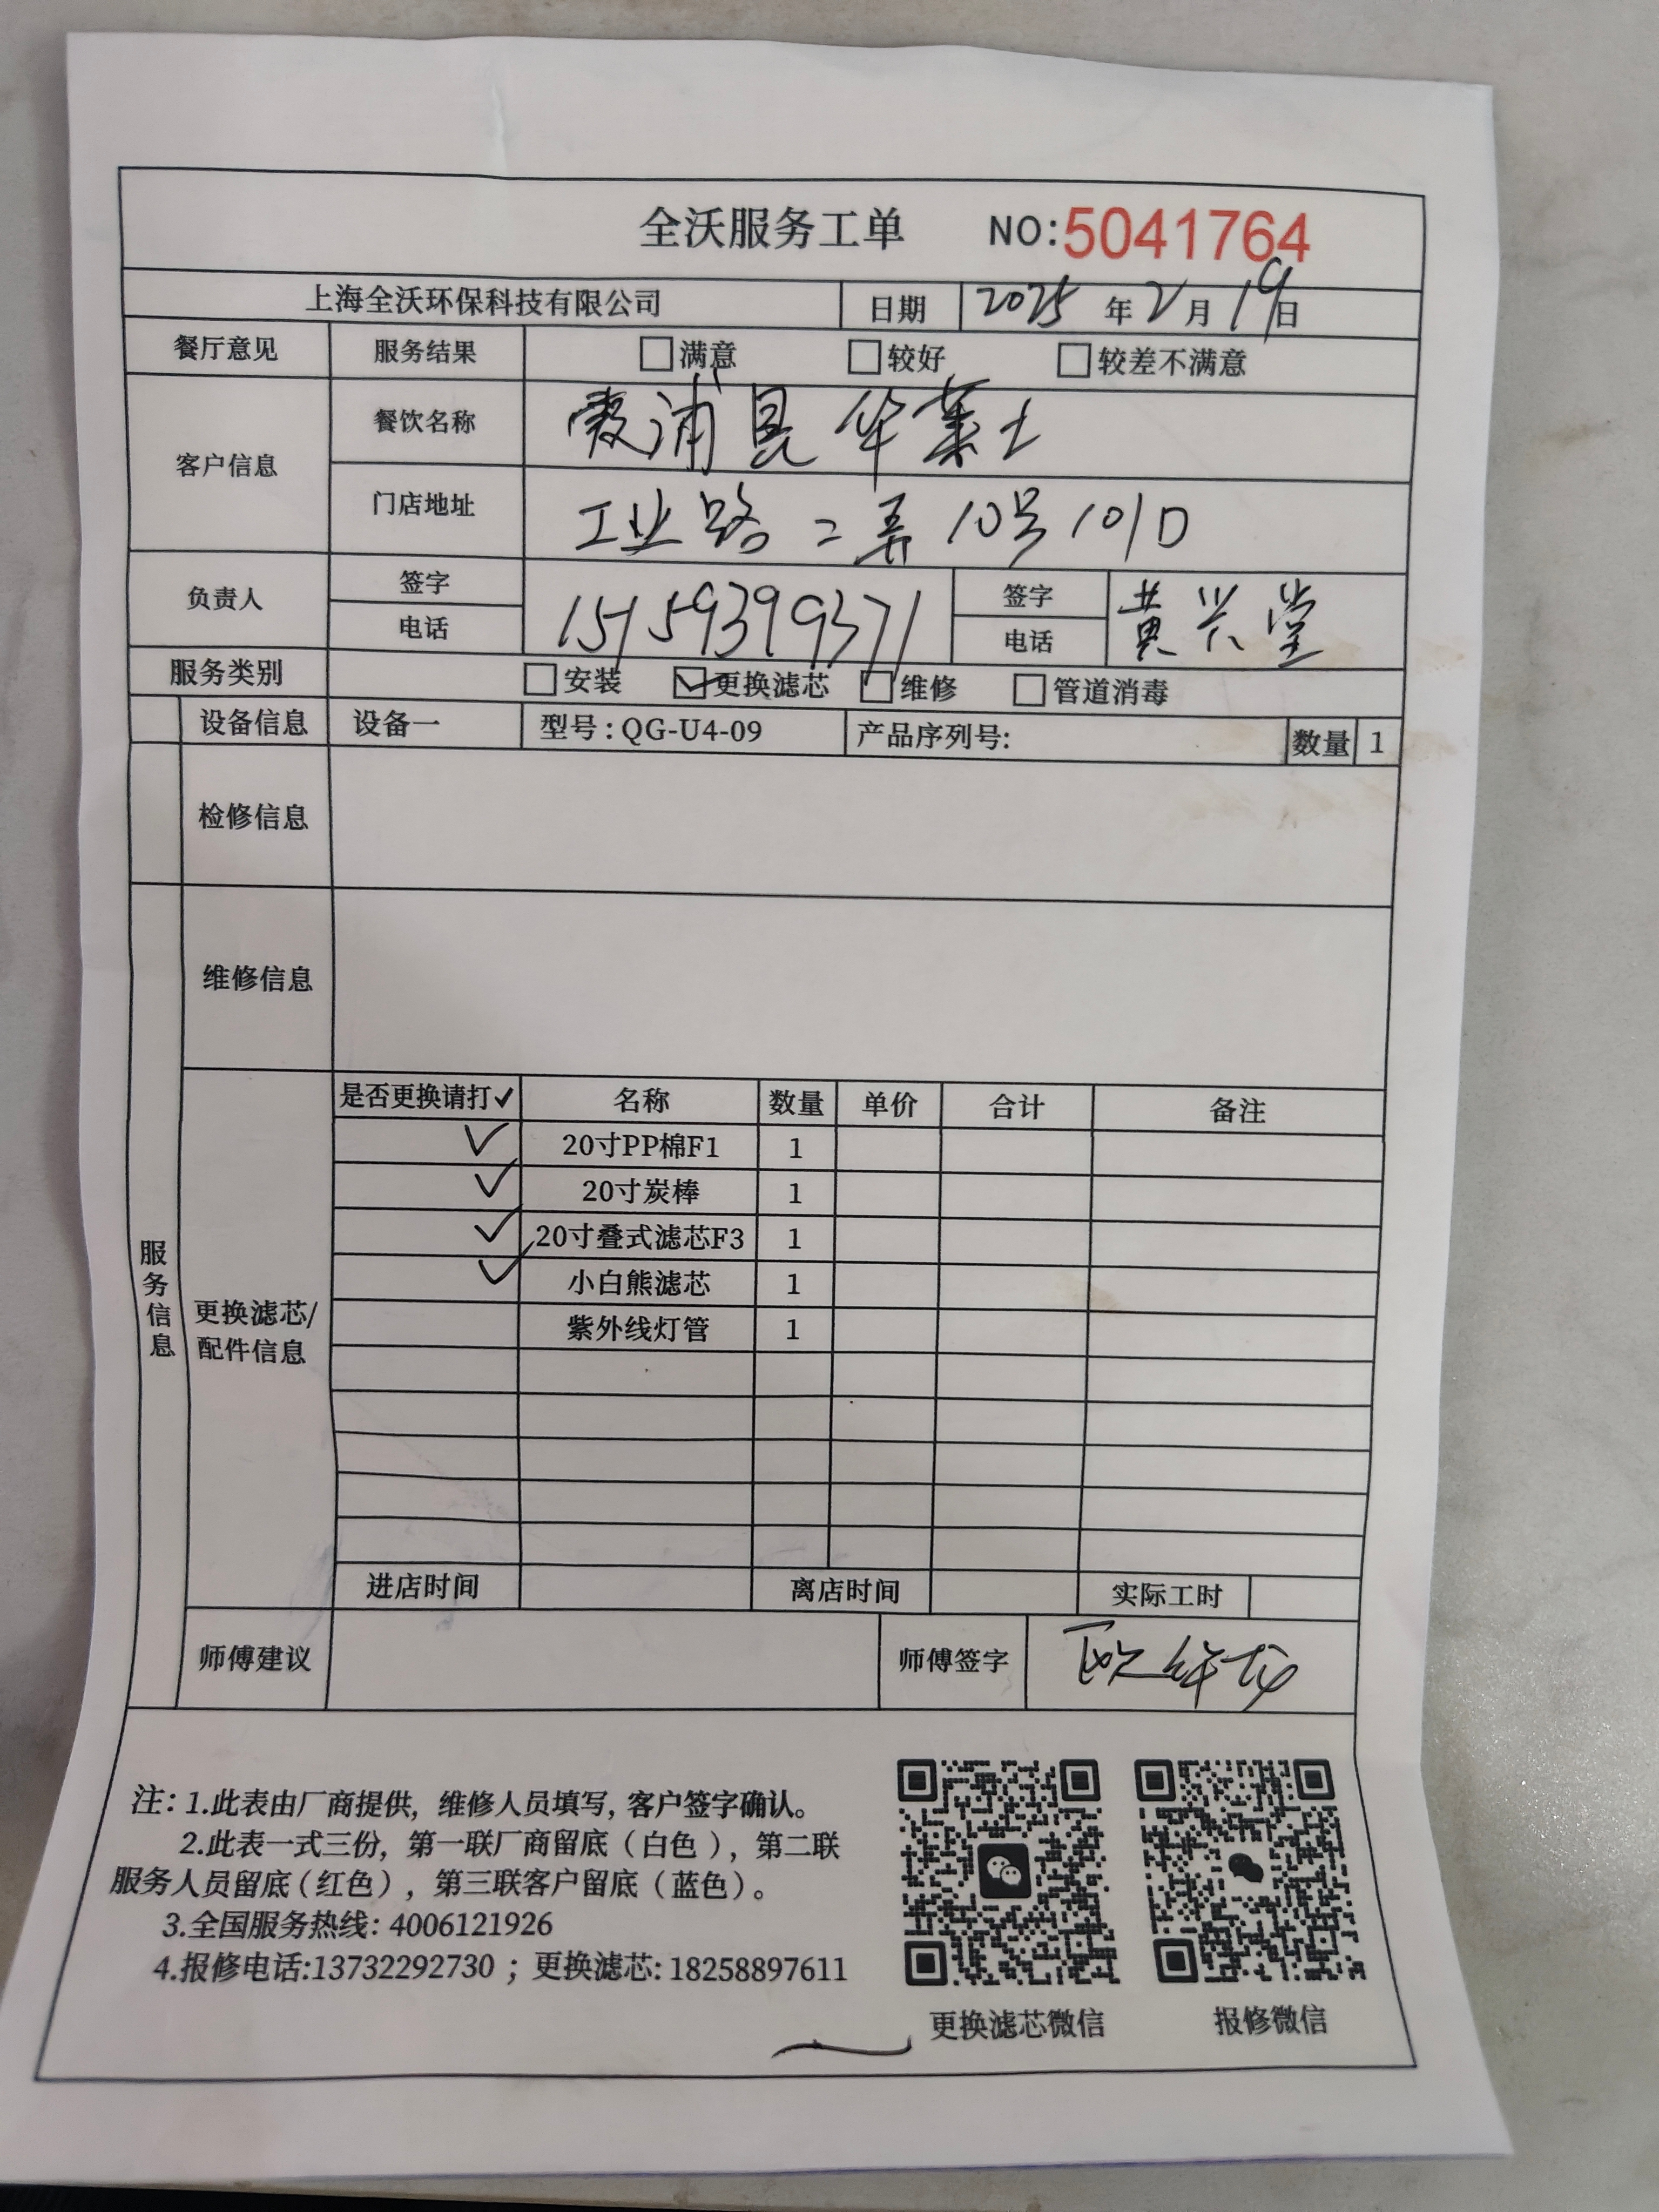 全沃服务工单 NO:5041764
上海全沃环保科技有限公司 日期 2025 年 2 月 19 日
餐厅意见 服务结果 □满意 □较好 □较差不满意
客户信息 餐饮名称 霞浦县华莱士
门店地址 工业路二弄10号101D
负责人 签字 电话 15159399371 签字 电话 黄兴堂
服务类别 □安装 ☑更换滤芯 □维修 □管道消毒
设备信息 设备一 型号:QG-U4-09 产品序列号: 数量 1
检修信息
维修信息
服务信息
更换滤芯/配件信息
是否更换请打✓ 名称 数量 单价 合计 备注
✓ 20寸PP棉F1 1
✓ 20寸炭棒 1
✓ 20寸叠式滤芯F3 1
✓ 小白熊滤芯 1
紫外线灯管 1
进店时间 离店时间 实际工时
师傅建议 师傅签字
注:1.此表由厂商提供,维修人员填写,客户签字确认。
2.此表一式三份,第一联厂商留底(白色),第二联
服务人员留底(红色),第三联客户留底(蓝色)。
3.全国服务热线:4006121926
4.报修电话:13732292730;更换滤芯:18258897611
更换滤芯微信 报修微信